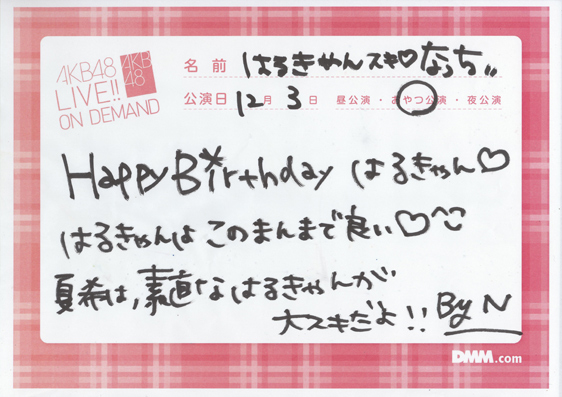 AKB48
LIVE!!
ON DEMAND
AKB
48
名前 はるきゃんスキ♡なっち"
公演日 12月 3日 昼公演・おやつ公演・夜公演
Happy Birthday はるきゃん♡
はるきゃんは このまんまで良い♡^^
夏希は,素直なはるきゃんが
大スキだよ!! By N
DMM.com